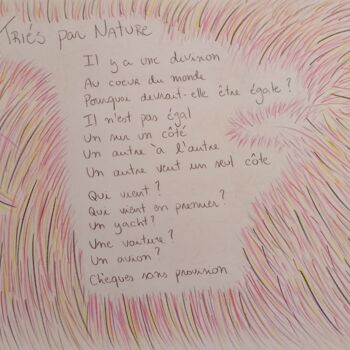 Triés par Nature
Il y a une division
Au coeur du monde
Pourquoi devrait-elle être égale ?
Il n'est pas égal
Un sur un côté
Un autre à l'autre
Un autre veut un seul côte
Qui vient ?
Qui vient en premier ?
Un yacht ?
Une voiture ?
Un avion ?
Chèques sans provision